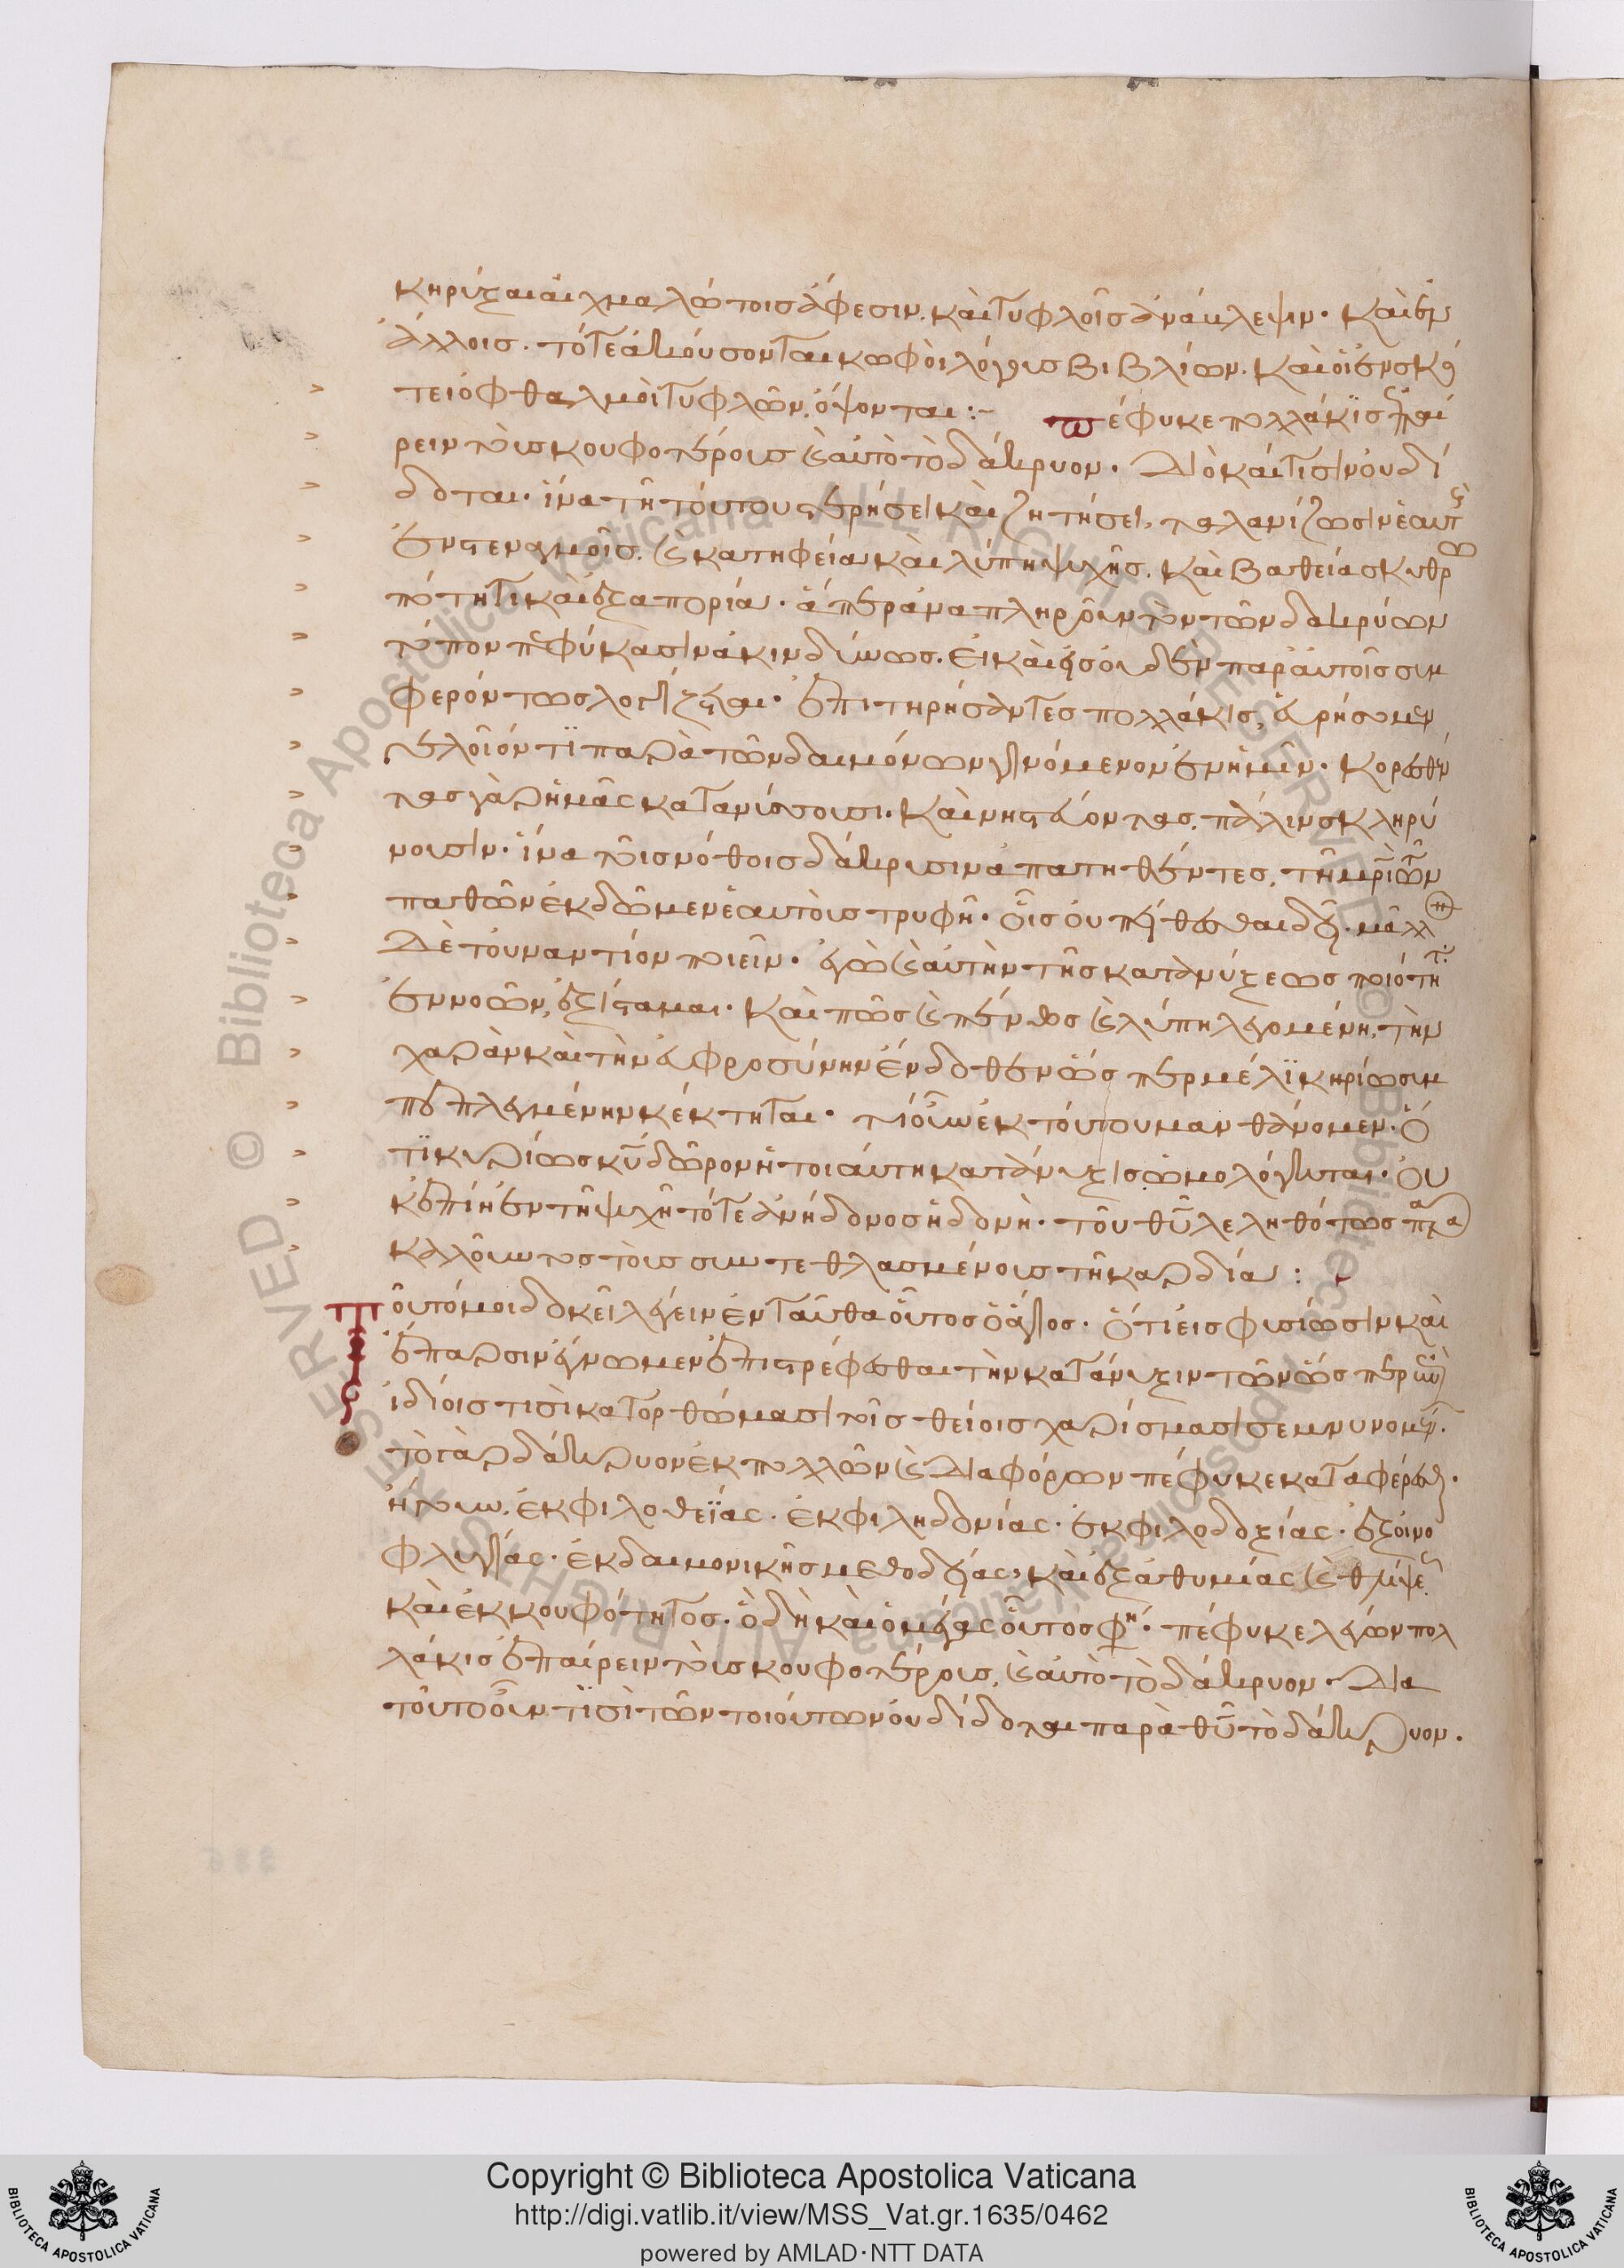 κηρύξαι αἰχμαλώτοις ἄφεσιν. καὶ τυφλοῖς ἀνάβλεψιν. καὶ ἐν
ἄλλοις. τότε ἀκούσονται κωφοὶ λόγους βιβλίων. καὶ οἱ ἐν σκό
τει ὀφθαλμοὶ τυφλῶν, ὄψονται :-
πέφυκε πολλάκις ἐπαί
ρειν τοὺς κουφοτέρους καὶ αὐτὸ τὸ δάκρυον. διὸ καὶ τισὶν οὐ δί
δοται. ἵνα τῇ τούτου στερήσει καὶ ζητήσει, ταλανίζωσιν ἑαυτοὺς
ἐν στεναγμοῖς. καὶ κατηφείᾳ καὶ λύπῃ ψυχῆς. καὶ βαθείᾳ σκυθρω
πότητι καὶ ἐξαπορίᾳ. ἅπερ ἀναπληροῦν τὸν τῶν δακρύων
τόπον πεφύκασιν ἀκινδύνως. εἰ καὶ εἰς οὐδὲν παρ' αὐτοῖς συμ
φερόντως λογίζεται. ἐπιτηρήσαντες πολλάκις, εὑρήσομεν
γελοῖόν τι παρὰ τῶν δαιμόνων γινόμενον ἐν ἡμῖν. κορεσθέν
τας γὰρ ἡμᾶς κατανύττουσι. καὶ νηστεύοντας, πάλιν σκληρύ
νουσιν. ἵνα τοῖς νόθοις δάκρυσιν ἀπατηθέντες, τῇ μητρὶ τῶν
παθῶν ἐκδῶμεν ἑαυτοὺς τρυφῇ. οἷς οὐ πείθεσθαι δεῖ. μᾶλλον
δὲ τοὐναντίον ποιεῖν. ἐγὼ καὶ αὐτὴν τῆς κατανύξεως ποιότητα
ἐννοῶν, ἐξίσταμαι. καὶ πῶς καὶ πένθος καὶ λύπη λεγομένη, τὴν
χαρὰν καὶ τὴν εὐφροσύνην ἔνδοθεν ὥσπερ μέλι κηρίῳ συμ
πεπλεγμένην κέκτηται. τί οὖν ἐκ τούτου μανθάνομεν. ὅ
τι κυρίως κυ δῶρον ἡ τοιαύτη κατάνυξις ὡμολόγηται. οὐ
κ ἔπι ἐν τῇ ψυχῇ τότε ἀνήδονος ἡδονή. τοῦ θυ λεληθότως παρα
καλοῦντος τοὺς συντεθλασμένους τῇ καρδίᾳ :
Τοῦτό μοι δοκεῖ λέγειν ἐνταῦθα οὗτος ὁ ἅγιος. ὅτι εἰς φυσίωσιν καὶ
ἔπαρσιν ἔγνωμεν ἐπιστρέφεσθαι τὴν κατάνυξιν τῶν ὥσπερ
ἰδίοις τισὶ κατορθώμασι τοῖς θείοις χαρίσμασι σεμνυνομένων.
τὸ γὰρ δάκρυον ἐκ πολλῶν καὶ διαφόρων πέφυκε καταφέρεσθαι.
ἤγουν, ἐκ φιλοθεΐας. ἐκ φιληδονίας. ἐκ φιλοδοξίας. ἐξ οἰνο
φλυγίας. ἐκ δαιμονικῆς μεθοδείας, καὶ ἐξ ἀθυμίας καὶ θλίψεως
καὶ ἐκ κουφότητος. ὃ δὴ καὶ ὁ μέγας οὗτος φη. πέφυκε λέγων πολ
λάκις ἐπαίρειν τοὺς κουφοτέρους, καὶ αὐτὸ τὸ δάκρυον. διὰ
τοῦτο οὖν τισὶ τῶν τοιούτων οὐ δίδοται παρὰ θυ τὸ δάκρυον.
© Biblioteca Apostolica Vaticana ALL RIGHTS RESERVED © Biblioteca Apostolica Vaticana ALL RIGHTS RESERVED
Copyright © Biblioteca Apostolica Vaticana
http://digi.vatlib.it/view/MSS_Vat.gr.1635/0462
powered by AMLAD·NTT DATA
BIBLIOTECA APOSTOLICA VATICANA
BIBLIOTECA APOSTOLICA VATICANA